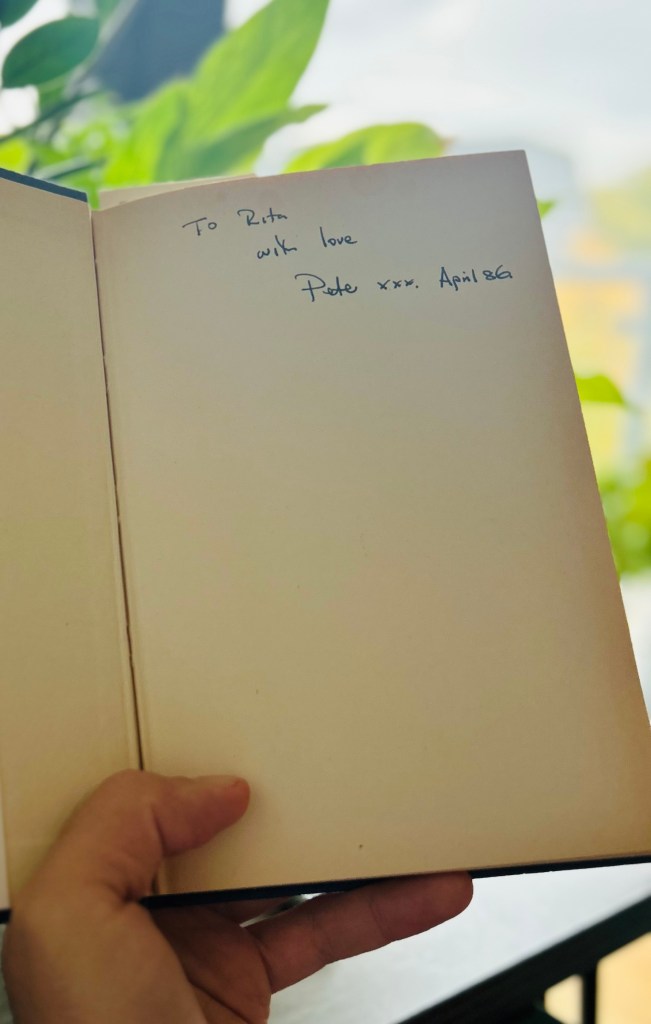 To Rita
with love
Pete xxx. April 86